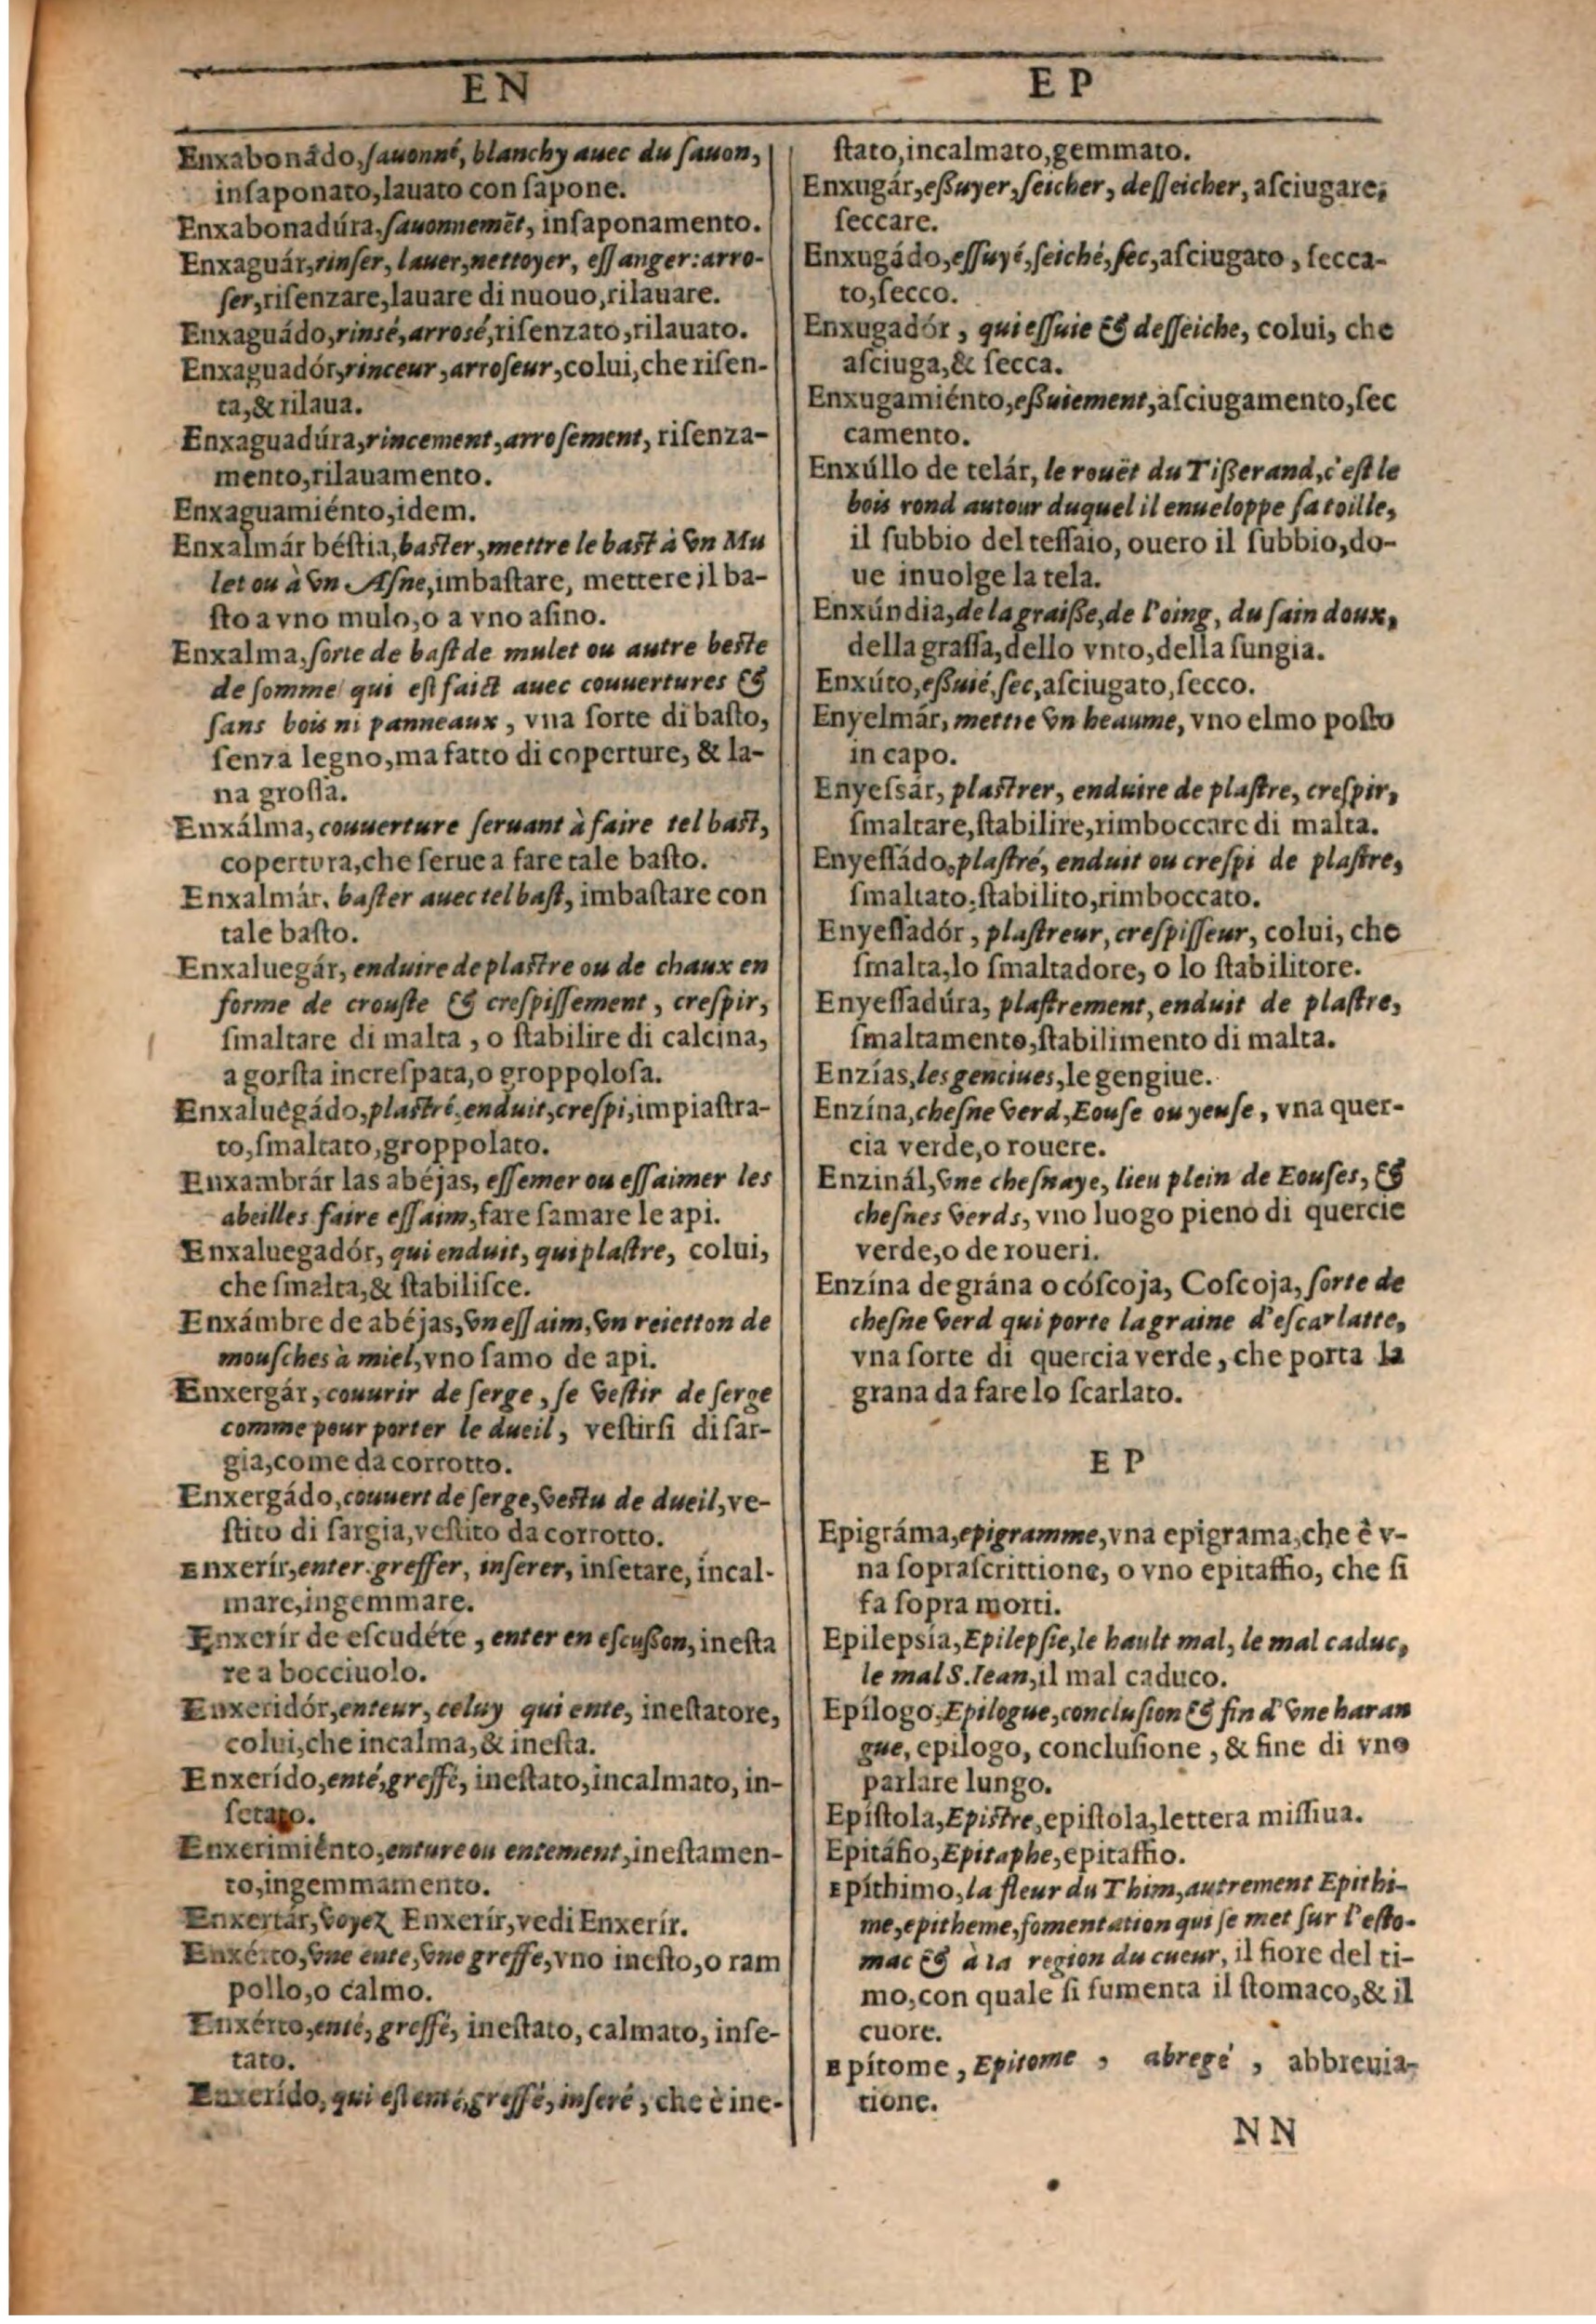 EN
Enxabonádo, sauonné, blanchy auec du sauon,
insaponato, lauato con sapone.
Enxabonadúra, sauonnemẽt, insaponamento.
Enxaguár, rinser, lauer, nettoyer, essanger: arro-
ser, risenzare, lauare di nuouo, rilauare.
Enxaguádo, rinsé, arrosé, risenzato, rilauato.
Enxaguadór, rinceur, arroseur, colui, che risen-
ta, & rilaua.
Enxaguadúra, rincement, arrosement, risenza-
mento, rilauamento.
Enxaguamiénto, idem.
Enxalmár béstia, baster, mettre le bast à vn Mu
let ou à vn Asne, imbastare, mettere il ba-
sto a vno mulo, o a vno asino.
Enxalma, sorte de bast de mulet ou autre beste
de somme qui est faict auec couuertures &
sans bois ni panneaux, vna sorte di basto,
senza legno, ma fatto di coperture, & la-
na grossa.
Enxálma, couuerture seruant à faire tel bast,
copertura, che serue a fare tale basto.
Enxalmár, baster auec tel bast, imbastare con
tale basto.
Enxaluegár, enduire de plastre ou de chaux en
forme de crouste & crespissement, crespir,
smaltare di malta, o stabilire di calcina,
a gorsta increspata, o groppolosa.
Enxaluegádo, plastré, enduit, crespi, impiastra-
to, smaltato, groppolato.
Enxambrár las abéjas, essemer ou essaimer les
abeilles faire essaim, fare samare le api.
Enxaluegadór, qui enduit, qui plastre, colui,
che smalta, & stabilisce.
Enxámbre de abéjas, vn essaim, vn reietton de
mousches à miel, vno samo de api.
Enxergár, couurir de serge, se vestir de serge
comme pour porter le dueil, vestirsi di sar-
gia, come da corrotto.
Enxergádo, couuert de serge, vestu de dueil, ve-
stito di sargia, vestito da corrotto.
Enxerír, enter. greffer, inserer, insetare, incal-
mare, ingemmare.
Enxerír de escudéte, enter en escusson, inesta
re a bocciuolo.
Enxeridór, enteur, celuy qui ente, inestatore,
colui, che incalma, & inesta.
Enxerído, enté, greffé, inestato, incalmato, in-
setato.
Enxerimiénto, enture ou entement, inestamen-
to, ingemmamento.
Enxertár, voyez Enxerír, vedi Enxerír.
Enxérto, vne ente, vne greffe, vno inesto, o ram
pollo, o calmo.
Enxérto, enté, greffé, inestato, calmato, inse-
tato.
Enxerído, qui est enté, greffé, inseré, che è ine-
EP
stato, incalmato, gemmato.
Enxugár, essuyer, seicher, desseicher, asciugare,
seccare.
Enxugádo, essuyé, seiché, sec, asciugato, secca-
to, secco.
Enxugadór, qui essuie & desseiche, colui, che
asciuga, & secca.
Enxugamiénto, essuiement, asciugamento, sec
camento.
Enxúllo de telár, le rouët du Tisserand, c'est le
bois rond autour duquel il enueloppe sa toille,
il subbio del tessaio, ouero il subbio, do-
ue inuolge la tela.
Enxúndia, de la graisse, de l'oing, du sain doux,
della grassa, dello vnto, della sungia.
Enxúto, essuié, sec, asciugato, secco.
Enyelmár, mettre vn heaume, vno elmo posto
in capo.
Enyessár, plastrer, enduire de plastre, crespir,
smaltare, stabilire, rimboccare di malta.
Enyessádo, plastré, enduit ou crespi de plastre,
smaltato, stabilito, rimboccato.
Enyessadór, plastreur, crespisseur, colui, che
smalta, lo smaltadore, o lo stabilitore.
Enyessadúra, plastrement, enduit de plastre,
smaltamento, stabilimento di malta.
Enzías, les genciues, le gengiue.
Enzína, chesne verd, Eouse ou yeuse, vna quer-
cia verde, o rouere.
Enzinál, vne chesnaye, lieu plein de Eouses, &
chesnes verds, vno luogo pieno di quercie
verde, o de roueri.
Enzína de grána o cóscoja, Coscoja, sorte de
chesne verd qui porte la graine d'escarlatte,
vna sorte di quercia verde, che porta la
grana da fare lo scarlato.
EP
Epigráma, epigramme, vna epigrama, che è v-
na soprascrittione, o vno epitaffio, che si
fa sopra morti.
Epilepsía, Epilepsie, le hault mal, le mal caduc,
le mal S. Iean, il mal caduco.
Epílogo, Epilogue, conclusion & fin d'vne haran
gue, epilogo, conclusione, & fine di vno
parlare lungo.
Epístola, Epistre, epistola, lettera missiua.
Epitáfio, Epitaphe, epitaffio.
Epíthimo, la fleur du Thim, autrement Epithi-
me, epitheme, fomentation qui se met sur l'esto-
mac & à la region du cueur, il fiore del ti-
mo, con quale si fumenta il stomaco, & il
cuore.
Epítome, Epitome, abregé, abbreuia-
tione.
NN